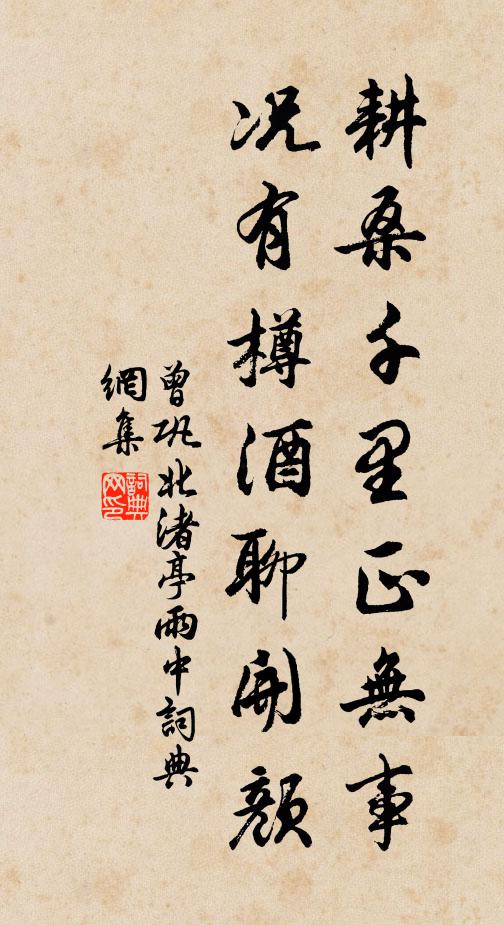 耕桑千里正無事
况有樽酒聊開顏
曾巩北渚亭雨中詞典
網集
詞典
网印